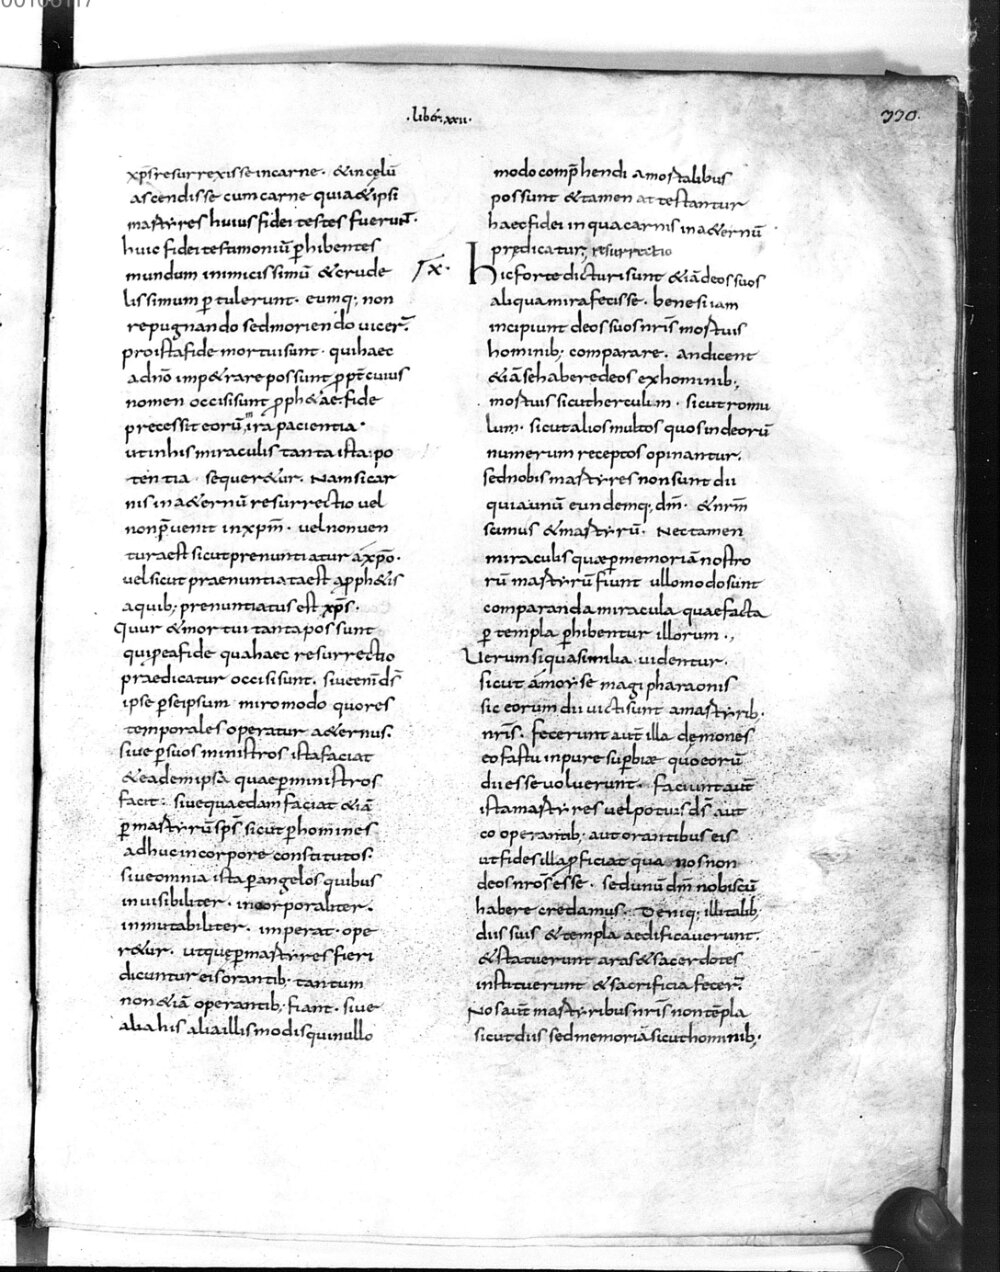 00106117
·liber·xxii·
330.
xp̄s resurrexisse in carne · & in celū
ascendisse cum carne quia & ipsi
martyres huius fidei testes fuerunt.
huic fidei testimoniū p̄hibentes
mundum inimicissimū & crude
lissimum p̄tulerunt · eumq; non
repugnando sed moriendo uicer̄.
pro ista fide mortui sunt · qui haec
a dn̄o imp&rare possunt p̄pt̄ cuius
nomen occisi sunt p̄ph&ae fide
precessit eorū mira pacientia ·
ut in his miraculis tanta ista po
tentia · sequer&ur. Nam si car
nis in a&ernū resurrectio uel
non p̄uenit in xp̄m · uel non uen
tura est sicut prenuntiatur a xp̄o ·
uel sicut praenuntiata est a p̄ph&is
a quib; prenuntiatus est xp̄s ·
Quur & mortui tanta possunt
qui p̄ ea fide qua haec resurrectio
praedicatur occisi sunt. siue enī ds̄
ipse p̄ se ipsum miro modo quo res
temporales operatur a&ernus.
siue p̄ suos ministros ista faciat
& eadem ipsa quae p̄ ministros
facit: siue quaedam faciat &iā
p̄ martyrū sp̄s sicut p̄ homines
adhuc in corpore constitutos.
siue omnia ista p̄ angelos quibus
inuisibiliter · incorporaliter ·
inmutabiliter · imperat · ope
r&ur · ut quę p̄ martyres fieri
dicuntur eis orantib; tantum
non &iā operantib; fiant · siue
alia his alia illis modis qui nullo
modo comp̄hendi a mortalibus
possunt & tamen attestantur
haec fidei in qua carnis in a&ernū
prędicatur resurrectio
x · Hic forte dicturi sunt &iā deos suos
aliqua mira fecisse · bene si iam
incipiunt deos suos nr̄is mortuis
hominib; comparare. an dicent
&iā se habere deos ex hominib;
mortuis sicut herculem · sicut romu
lum · sicut alios multos quos in deorū
numerum receptos opinantur.
sed nobis martyres non sunt dii
quia unū eundemq; dm̄ · & nrm̄
scimus & martyrū · Nec tamen
miraculis quae p̄ memoriā nostro
rū martyrū fiunt ullo modo sunt
comparanda miracula quae facta
p̄ templa p̄hibentur illorum ·,
Uerum si qua similia uidentur ·
sicut a moyse magi pharaonis
sic eorum dii uicti sunt a martyrib·
nr̄is. fecerunt aut̄ illa demones
eo fastu inpure sup̄biae quo eorū
dii esse uoluerunt · faciunt aut̄
ista martyres uel potius ds̄ aut
co operantib· aut orantibus eis
ut fides illa p̄ficiat qua nos non
deos nros̄ esse · sed unū dm̄ nobiscū
habere credamus. Deniq; illi talib·
diis suis & templa aedificauerunt.
& statuerunt aras & sacerdotes
instituerunt & sacrificia fecer̄.
Nos aut̄ martyribus nr̄is non tēpla
sicut diis sed memoriā sicut hominib;